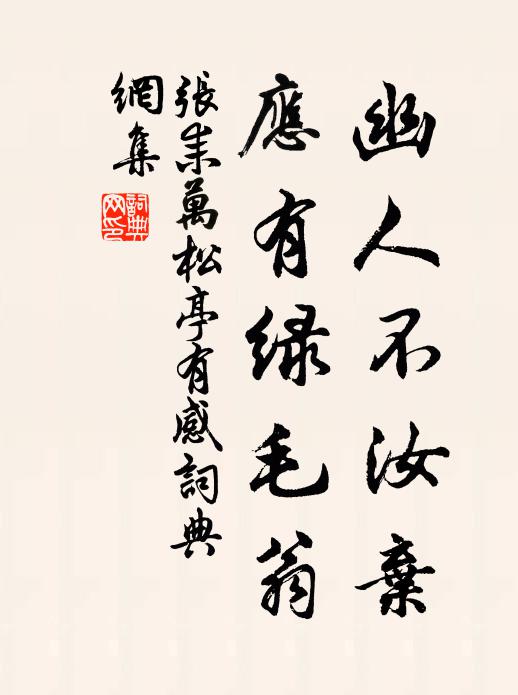 幽人不汝棄
應有緑毛翁
張耒萬松亭有感詞典
網集
詞典
网印